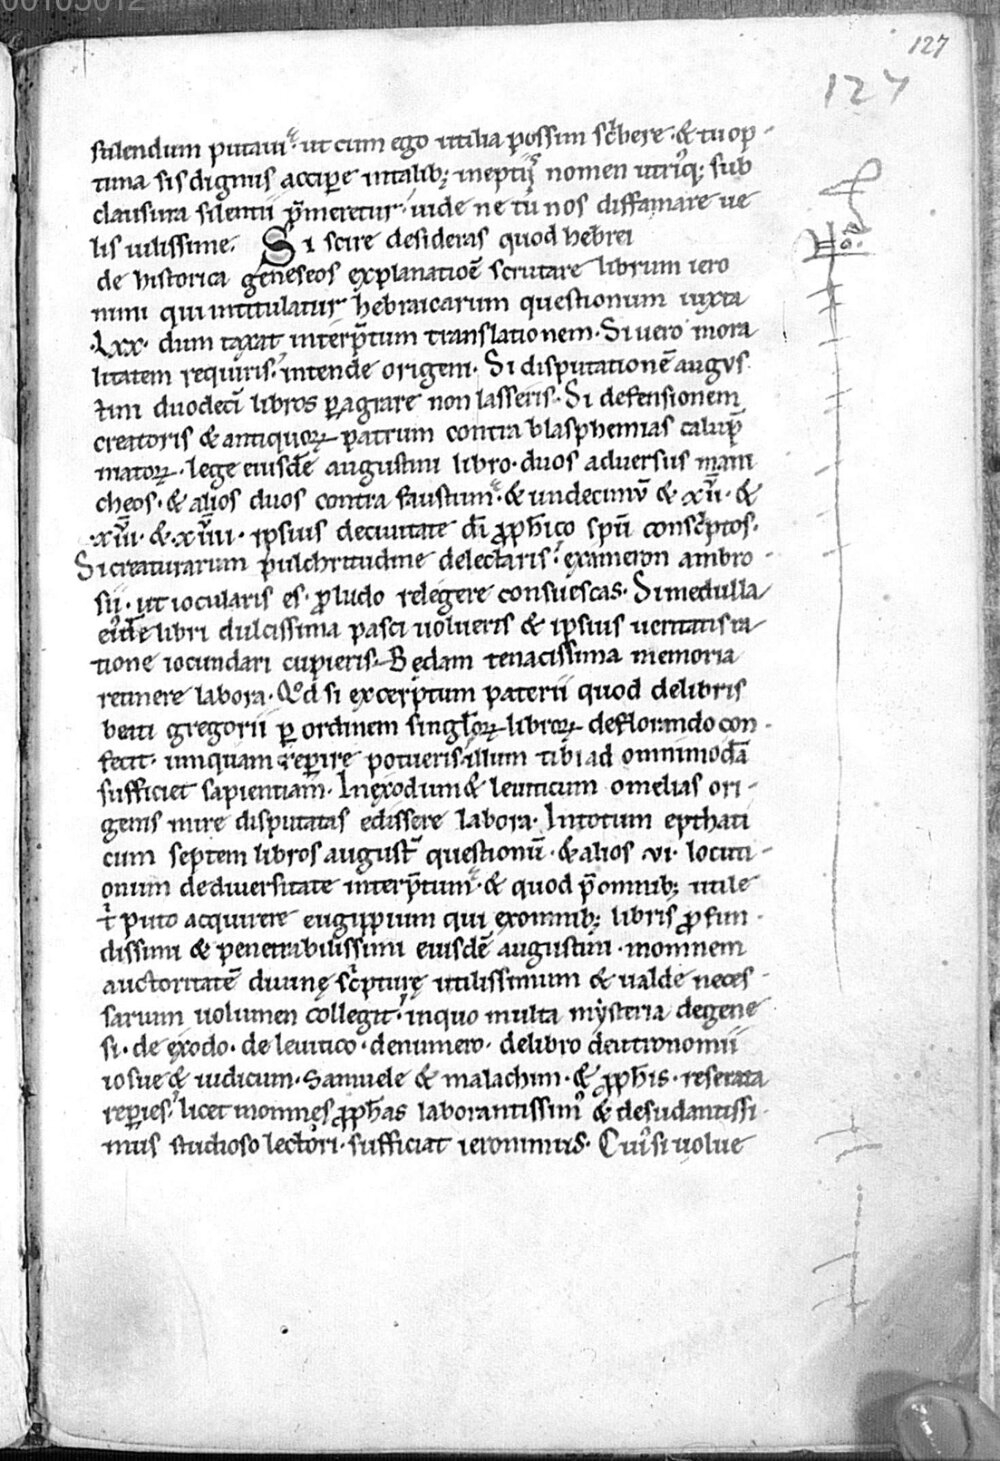 00105012
127
127
stulendum putaui. ut cum ego utilia possim sc̄bere. & tu op-
tuna sis dignus accipe intalib; ineptiis nomen utriq; sub
clausura silentii p̄meretur. uide ne tu nos diffamare ue
lis uilissime. Si scire desideras quod hebrei
de historica geneseos explanatioē scrutare librum iero
nimi qui intitulatur hebraicarum questionum iuxta
.lxx. dum taxat interp̄tum translationem. Si uero mora
litatem requiris. intende origem. Si disputationē augus
tini duodeci libros pagrare non lasseris. Si defensionem
creatoris & antiquoꝝ patrum contra blasphemias calup̄
niatoꝝ. lege eiusdē augustini libro. duos aduersus mani
cheos. & alios duos contra faustum. & undecimū & xii. &
.xiii. & .xiiii. ipsius deciuitate dī ꝓph̄ico spū consc̄ptos.
Si creaturarum pulchritudine delectaris. exameron ambro-
sii. ut iocularis es. ꝓ ludo relegere consuescas. Si medulla
eidē libri dulcissima pasci uolueris & ipsius ueritatis ra-
tione iocundari cupieris. Bedam tenacissima memoria
retinere labora. Qd si excerptum paterii quod delibris
beati gregorii ꝑ ordinem singloꝝ libroꝝ deflorando con-
fecit. umquam reꝑire potueris. illum tibi ad omnimodā
sufficiet sapientiam. In exodum & leuiticum omelias ori-
genis mire disputatas edissere labora. In totum epthati
cum septem libros august̄ questionū. & alios .vi. locuti-
onum dediuersitate interp̄tum. & quod p̄ omnib; utile
t̄ puto acquirere eugippium qui exomnib; libris ꝓfun-
dissimi & penetrabilissimi eiusdē augustini. inomnem
auctoritatē diuinę sc̄pturę utilissimum & ualde neces-
sarium uolumen collegit. inquo multa mysteria degene
si. de exodo. de leuitico. denumero. delibro deutronomii
iosue & iudicum. Samuele & malachim. & ꝓph̄is. reserata
reꝑies. licet inomnes ꝓph̄as laborantissim' & desudantissi-
mus studioso lectori. sufficiat ieronimus. Cui' si uolue